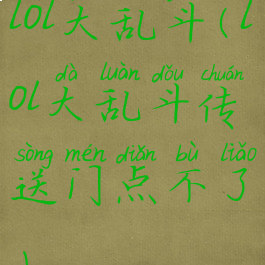 lol大乱斗(l
dà luàn dǒu chuán
ol大乱斗传
sòng mén diǎn bù liǎo
送门点不了
)